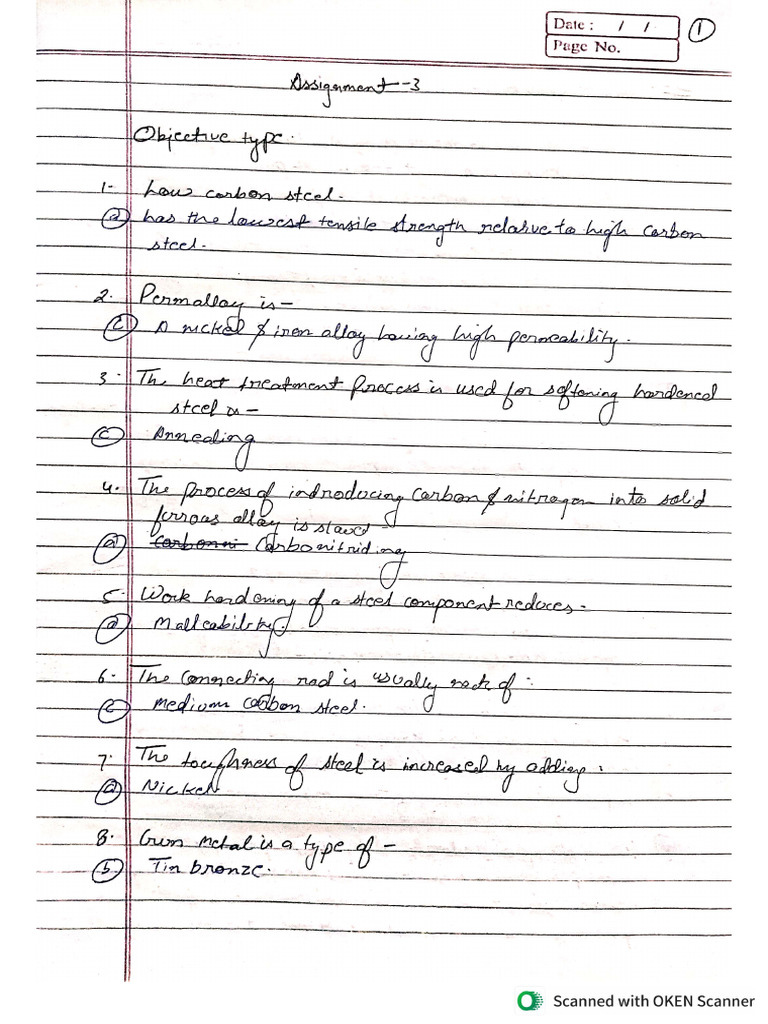 Date : / / 1
Page No.
Assignment -3
Objective type.
1- Low carbon steel.
(a) has the lowest tensile strength relative to high carbon
steel.
2. Permalloy is -
(c) A nickel & iron alloy having high permeability.
3. The heat treatment process is used for softening hardened
steel is -
(c) Annealing
4. The process of indroducing carbon & nitrogen into solid
ferrous alloy is
(a) Carbonitriding
5. Work hardening of a steel component reduces -
(a) Malleability.
6. The connecting rod is usually of :
(c) medium carbon steel.
7. The toughness of steel is increased by adding :
(a) Nickel
8. Gun metal is a type of -
(b) Tin bronze.
Scanned with OKEN Scanner